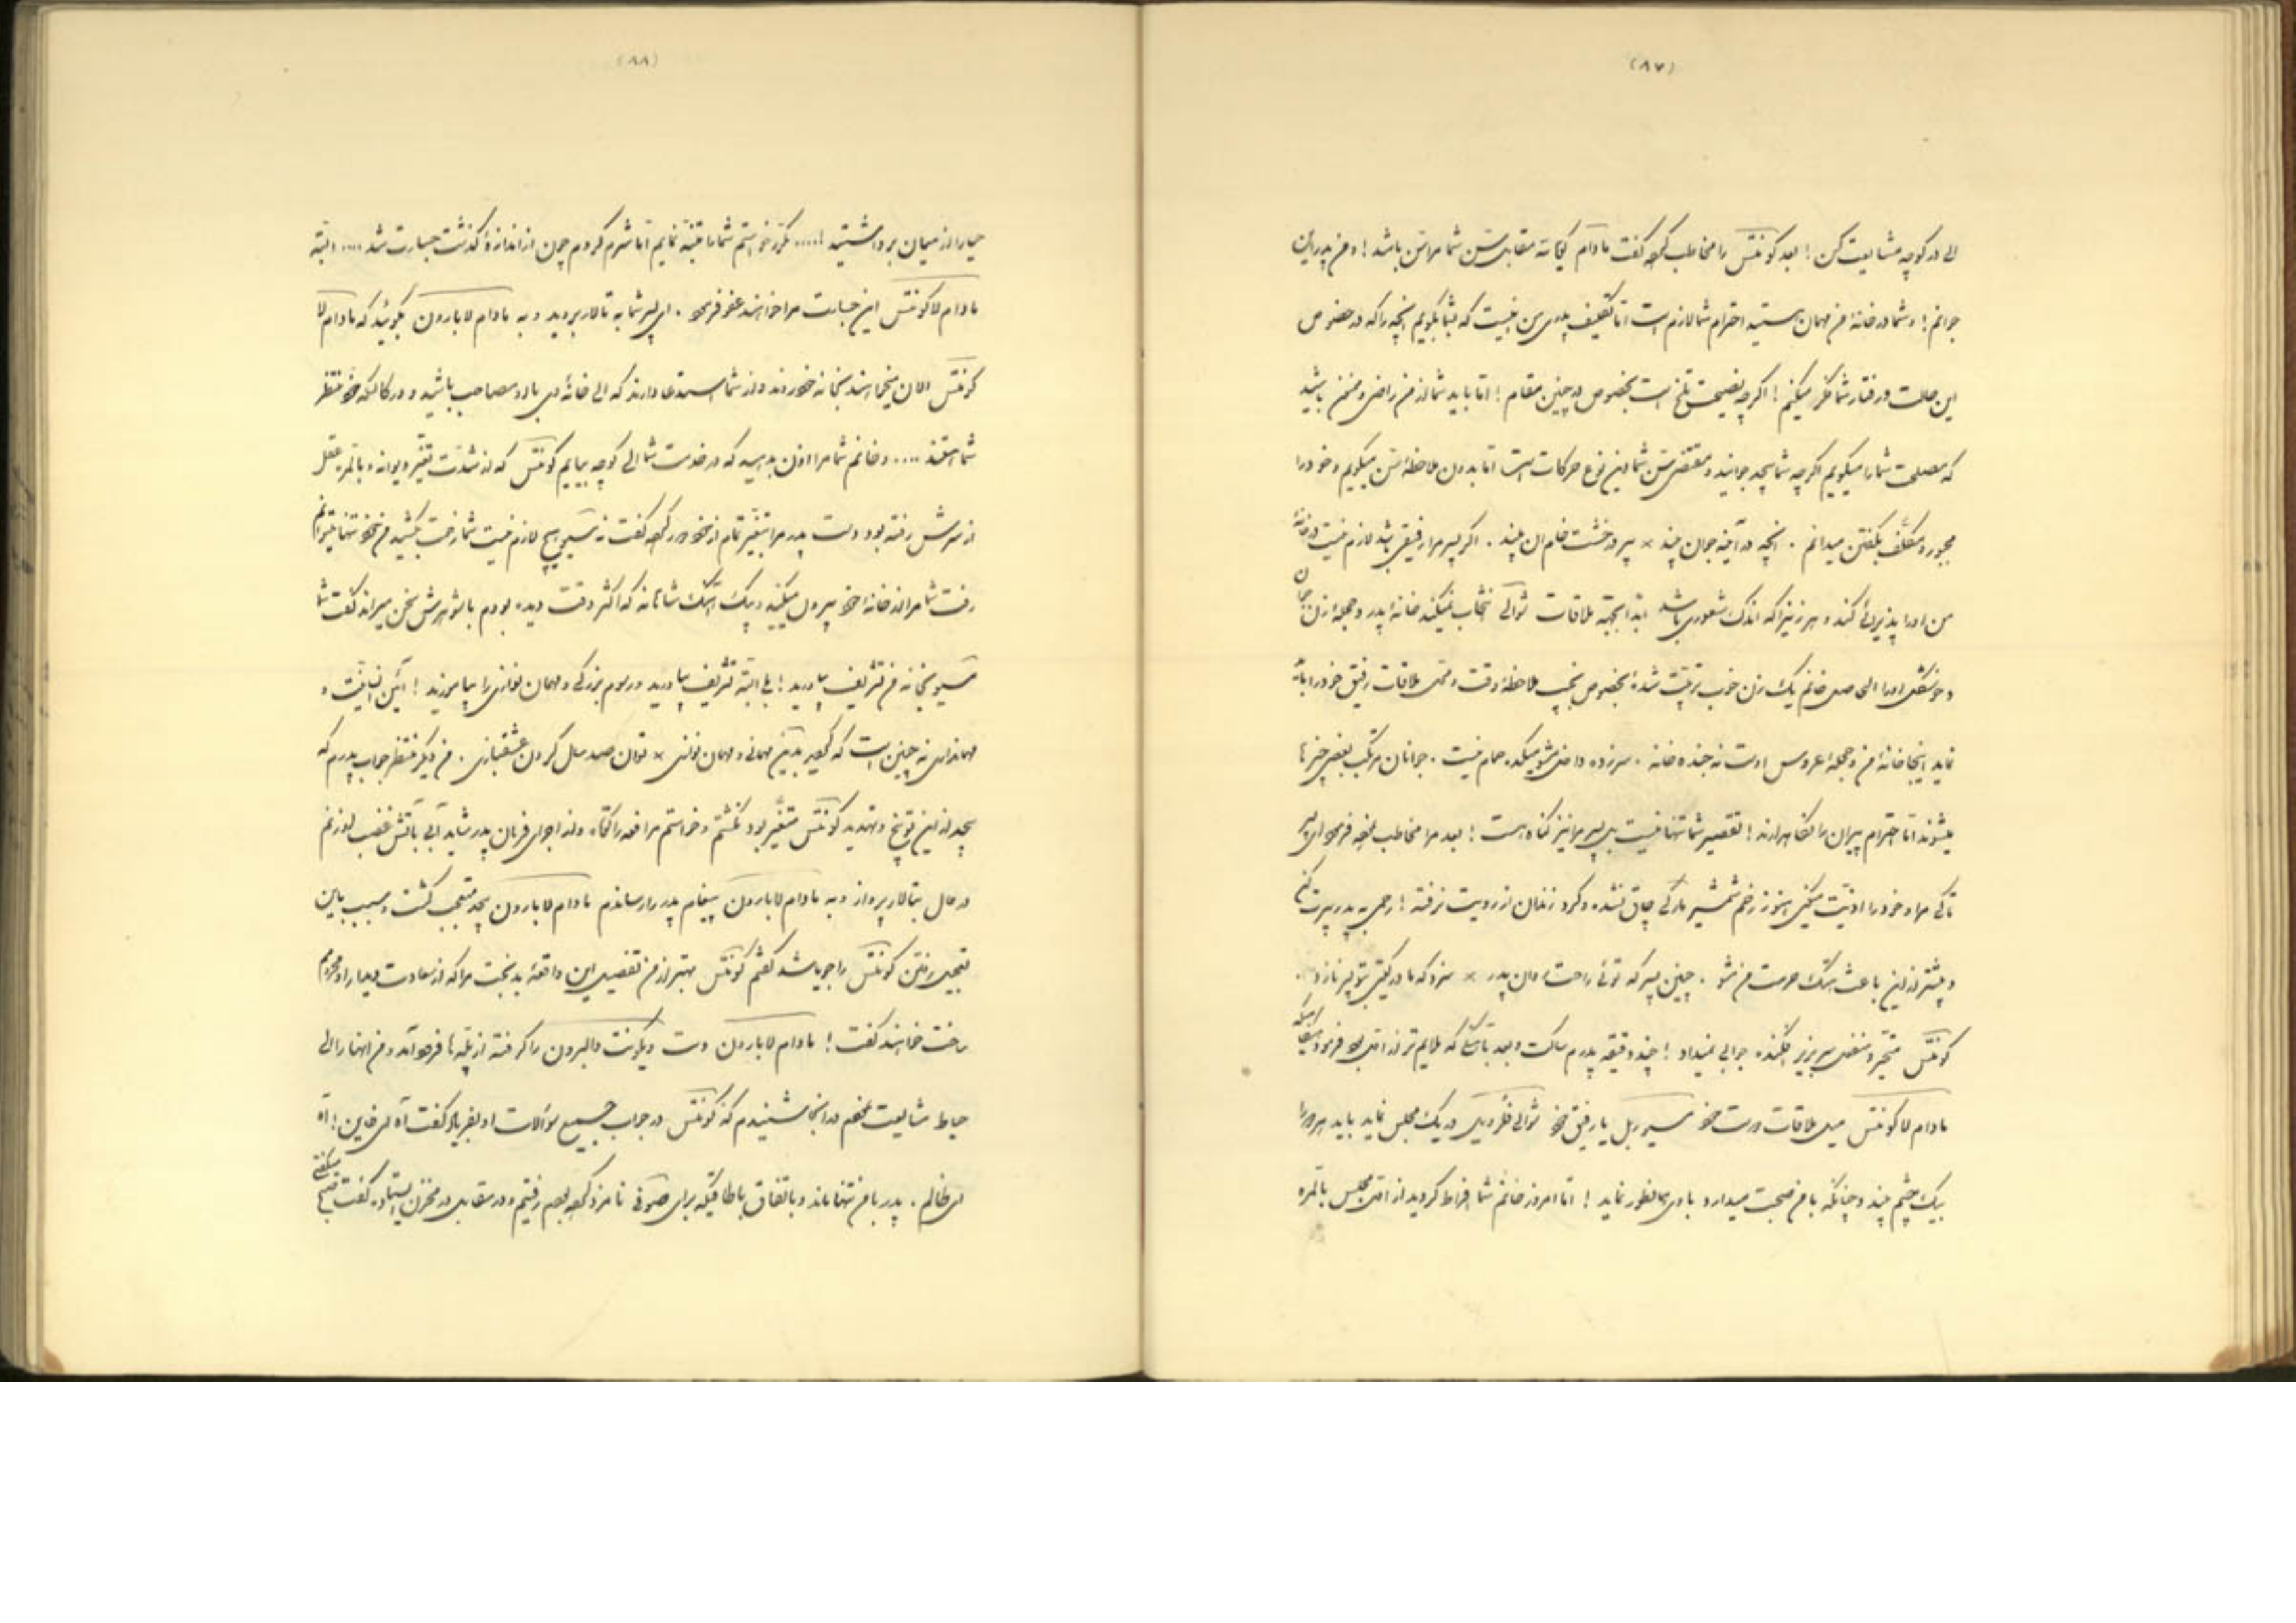 (۸۷)
الی در کوچه مشایعت کن! بعد کونتس را مخاطب کرده گفت مادام یکمرتبه مقابل سن شما مرا سن باشد! و من پدر این
جوانم! و شما در خانهٔ من مهمان هستید احترام شما لازم است اما تکلیف پدری من اینست که بشما بگویم آنچه را که در خصوص
این حالت و رفتار شما فکر میکنم! اگر چه نصیحت تلخ است بخصوص در چنین مقام! اما باید شما از من راضی و ممنون باشید
که مصلحت شما را میگویم اگر چه شما بچه جوانید و مقتضی سن شما این نوع حرکات است اما بدون ملاحظهٔ سن میگویم و خود را
مجبور و مکلف بگفتن میدانم . آنچه در آینه جوان بیند × پیر در خشت خام آن بیند . اگر پسر مرا رفیقی باشد لازم نیست در خانهٔ
من او را پذیرائی کند و هر زنیرا که اندک شعوری باشد ابدا بجهة ملاقات شوالیه انتخاب نمیکند خانهٔ پدر و حجلهٔ زن جوان
و خوشگل او را الحاصل خانم یک زن خوب تربیت شدهٔ بخصوص نجیب ملاحظهٔ وقت و محل ملاقات رفیق خود را باید
نماید اینجا خانهٔ من و حجلهٔ عروس اوست نه جنده خانه . سر زده داخل مشو میکده حمام نیست . جوانان مرتکب بعضی چیزها
میشوند اما احترام پیران را نگاه دارند! تقصیر شما تنها نیست پسر مرا نیز گناه هست! بعد مرا مخاطب نموده فرمود ای پسر
تا کی مرا و خود را اذیت میکنی هنوز زخم شمشیر مارکی چاق نشده و گرد زندان از رویت نرفته! رحمی به پدر پیرت کن
و بیشتر از این باعث هتک حرمت من مشو . چنین پسر که توئی راحت روان پدر × سزد که مادر گیتی بتو پسر نازد .
کونتس متحیر و منفعل سر بزیر افکنده جوابی نمیداد! چند دقیقه پدرم ساکت و بعد با آهنگی که ملایم تر از اول بود فرمود اینکه
مادام لا کونتس میل ملاقات دوست خود مسیو ربل یا رفیق خود شوالیه فلرویل در یک مجلس نماید باید هر دو را
بیک چشم بیند و چنانکه با من صحبت میدارد با وی همانطور نماید! اما امروز خانم شما افراط کردید از اول مجلس بالمره
(۸۸)
حیا را از میان برداشتید!.... مکرر خواستم شما را متنبه نمایم اما شرم کردم چون از اندازه گذشت جسارت شد .... البته
مادام لا کونتس این جسارت مرا خواهند عفو فرمود . ای پسر شما به تالار بروید و به مادام لا بارون بگوئید که مادام لا
کونتس الان میخواهند بخانه خود روند و از شما استدعا دارند که الی خانهٔ وی با او مصاحب باشید و در کالسکه خود منتظر
شما هستند .... و خانم شما مرا اذن بدهید که در خدمت شما الی کوچه بیایم کونتس که از شدت تغیر دیوانه و بالمره عقل
از سرش رفته بود دست پدر مرا بتغیر تمام از خود دور کرده گفت نه مسیو هیچ لازم نیست شما زحمت بکشید من خود تنها میتوانم
رفت شما مرا از خانه خود بیرون میکنید و بیک آهنگ شاتانه که اکثر وقت دیده بودم با شوهرش سخن میراند گفت شما
مسیو بخانه من تشریف بیاورید! بلی البته تشریف بیاورید و رسوم بزرگی و مهمان نوازی را بیاموزید! آئین ضیافت و
مهمانداری نه چنین است که کردید بدین مهمانی و مهمان نوازی × توان صد سال کردن عشقبازی . من دیگر منتظر جواب پدرم که
بیحد از این توبیخ و تهدید کونتس متغیر بود نگشتم و خواستم مرافعه را کوتاه و از اجرای فرمان پدر شاید آبی بآتش غضب او زنم
در حال بتالار پرواز و به مادام لا بارون پیغام پدر را رساندم مادام لا بارون بیحد متعجب گشت و سبب باین
تعجیل رفتن کونتس را جویا شد گفتم کونتس بهتر از من تفصیل این واقعهٔ بدبخت مرا که از سعادت دیدار او محروم
ساخت خواهند گفت! مادام لا بارون دست ویکونت والبرون را گرفته از پله ها فرود آمد و من آنها را الی
حیاط مشایعت نمودم در آنجا شنیدم که کونتس در جواب جمیع سؤالات او بفریاد گفت آه ای خاین! آه
ای ظالم . پدر با من تنها ماند و باتفاق باطاقیکه برای صوفی نامزد کرده بودیم رفتیم و در مقابل در مخزن ایستاده گفت